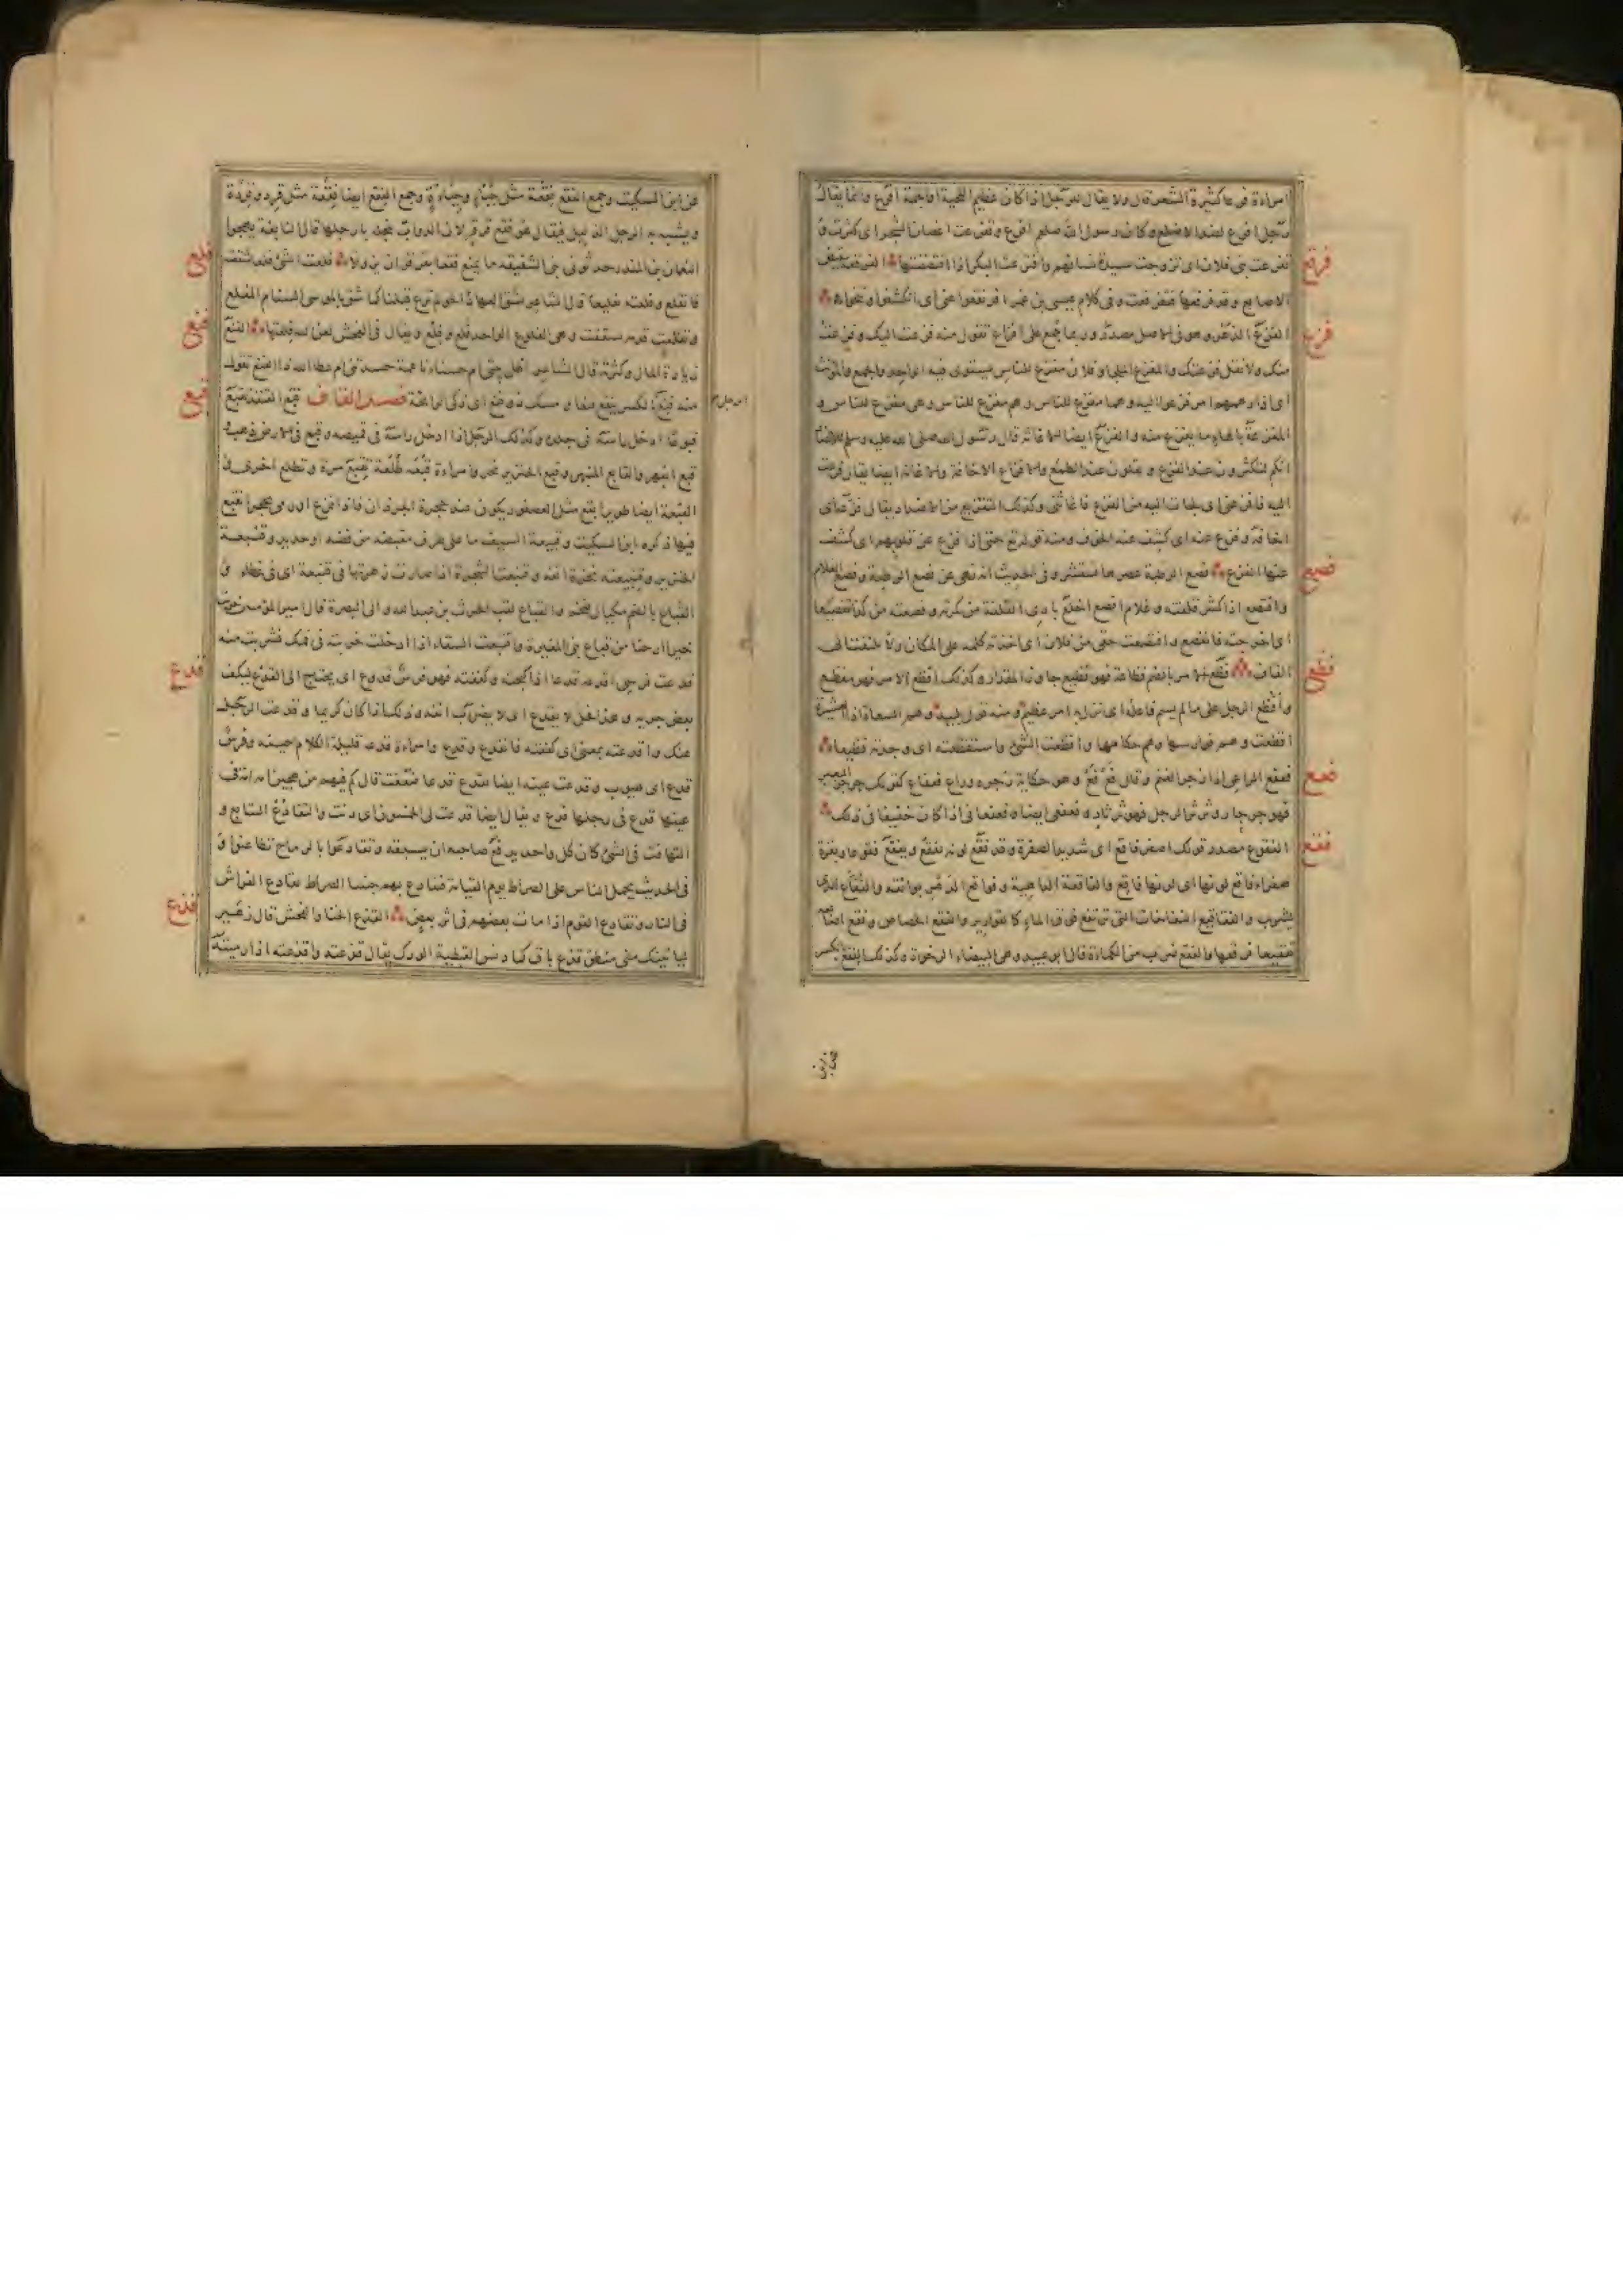 امراءة فرعا كثيرة الشعر قال ولا يقال للرجل اذا كان عظيم اللحية او الجمة افرع وانما يقال
رجل افرع لضد الاصلع وكان رسول الله صلعم افرع وتفرعت اغصان الشجر اى كثرت و
تفرعت بنى فلان اى تزوجت سيدة نسائهم وافترعت البكر اذا افتضضتها الفرقعة تنقيض
فرقع
الاصابع وقد فرقعها فتفرقعت وفى كلام عيسى بن عمر افرنقعوا عنى اى انكشفوا وتنحوا
الفزع الذعر وهو فى الاصل مصدر وربما جمع على افزاع تقول منه فزعت اليك وفزعت
فزع
منك ولا تقل فزعتك والمفزع الملجا وفلان مفزع للناس يستوى فيه الواحد والجمع والمؤنث
اى اذا دهمهم امر فزعوا اليه وهما مفزع للناس وهم مفزع للناس وهى مفزع للناس و
المفزعة بالهاء ما يفزع منه والفزع ايضا الاغاثة قال رسول الله صلى الله عليه وسلم للانصار
انكم لتكثرون عند الفزع وتقلون عند الطمع والافزاع الاخافة والاغاثة ايضا يقال فزعت
اليه فافزعنى اى لجات اليه من الفزع فاغاثنى وكذلك التفزيع من الاضداد يقال فزعه اى
اخافه وفزع عنه اى كشف عنه الخوف ومنه قوله تع حتى اذا فزع عن قلوبهم اى كشف
عنها الفزع فصع الرطبة عصرها لتنقشر وفى الحديث انه نهى عن فصع الرطبة وفصع الغلام
فصع
وافتصع اذا كشر قلفته وغلام افصع اجلع بادى القلفة من كمرته وفصعته من كذا تفصيعا
اى اخرجته فانفصع وافتصعت حقى من فلان اى اخذته كله على المكان ولا تلتفت الى
القاف فظع الامر بالضم فظاعة فهو فظيع جاوز المقدار وكذلك افظع الامر فهو مفظع
فظع
وافظع الرجل على ما لم يسم فاعله اى نزل به امر عظيم ومنه قول لبيد وهم السعاة اذا العشيرة
افظعت وهم فوارسها وهم حكامها وافظعت الشئ واستفظعته اى وجدته فظيعا
فعفع الراعى اذا زجر الغنم وقال فع فع وهو حكاية زجره وراع فعفاع كقولك جرجر البعير
فعع
فهو جرجار وثرثر الرجل فهو ثرثار وفعفعى ايضا وفعفعانى اذا كان خفيفا فى ذلك
الفقوع مصدر قولك اصفر فاقع اى شديد الصفرة وقد فقع لونه يفقع ويفقع فقوعا وبقرة
فقع
صفراء فاقع لونها اى لونها فاقع والفاقعة الداهية وفواقع الدهر بوائقه والفقاع الذى
يشرب والفقاقيع النفاخات التى ترتفع فوق الماء كالقوارير والفقع الحصاص وفقع اصابعه
تفقيعا فرقعها والفقع ضرب من الكماءة قال ابو عبيد وهى البيضاء الرخوة وكذلك الفقع بكسر
عن ابن السكيت وجمع الفقع فقعة مثل جبء وجباءة وجمع الفقع ايضا فقعة مثل قرد وقردة
ويشبه به الرجل الذليل فيقال هو فقع قرقر لان الدواب تنجله بارجلها قال النابغة يهجوا
النعمان بن المنذر حدثونى بنى الشقيقة ما يمنع فقعا بقرقر ان يزولا فلعت الشئ فلعا شققته
فلع
فانفلع وفلعته تفليعا قال الشاعر
وتفلعت قدمه تشققت وهى الفلوع الواحد فلع وفلع ويقال فى الفحش لعن الله فلعتها الفنع
فنع
زيادة المال وكثرته قال الشاعر اظل بيتى ام حسناء ناعمة حسدتنى ام عطاء الله ذا الفنع تقول
منه فنع بالكسر يفنع فنعا ومسك ذو فنع اى ذكى الرائحة فصل القاف قبع القنفذ يقبع
قبع
قبوعا ادخل راسه فى جلده وكذلك الرجل اذا ادخل راسه فى قميصه وقبع فى الارض ذهب و
قبع انبهر والقابع المنبهر وقبع الخنزير نخر وامراءة قبعة طلعة تقبع مرة وتطلع اخرى و
القبعة ايضا طوير ابقع مثل العصفور يكون عند حجرة الجرذان فاذا فزع او رمى بحجر انقبع
فيها ذكره ابن السكيت وقبيعة السيف ما على طرف مقبضه من فضة او حديد وقبيعة
الخنزير وقنبيعته نخرة انفه وقنبعت الشجرة اذا صارت زهرتها فى قنبعة اى فى غطاء و
القباع بالضم مكيال ضخم والقباع لقب الحرث بن عبد الله والى البصرة قال امير المؤمنين جزيت
خيرا ارحنا من قباع بنى المغيرة واقتبعت السقاء اذا ادخلت خربته فى فمك فشربت منه
قدعت فرسى اقدعه قدعا اذا كبحته وكففته فهو فرس قدوع اى يحتاج الى القدع ليكف
قدع
بعض جريه وهذا فحل لا يقدع اى لا يضرب انفه وذلك اذا كان كريما وقدعت الرجل
عنك واقدعته بمعنى اى كففته فانقدع وقدع وامراءة قدعة قليلة الكلام حيية وفرس
قدع اى هيوب وقدعت عينه ايضا تقدع قدعا ضعفت قال كم فيهم من هجين امه امة فى
عينها قدع فى رجلها فدع ويقال ايضا قدعت لى الخمسون اى دنت والتقادع التتابع و
التهافت فى الشئ كان كل واحد يدفع صاحبه ان يسبقه وتقادعوا بالرماح تطاعنوا و
فى الحديث يحمل الناس على الصراط يوم القيامة فتقادع بهم جنبتا الصراط تقادع الفراش
فى النار وتقادع القوم اذا مات بعضهم فى اثر بعض القذع الخنا والفحش قال زهير
قذع
لياتينك منى منطق قذع باق كما دنس القبطية الودك يقال قذعته واقذعته اذا رميته